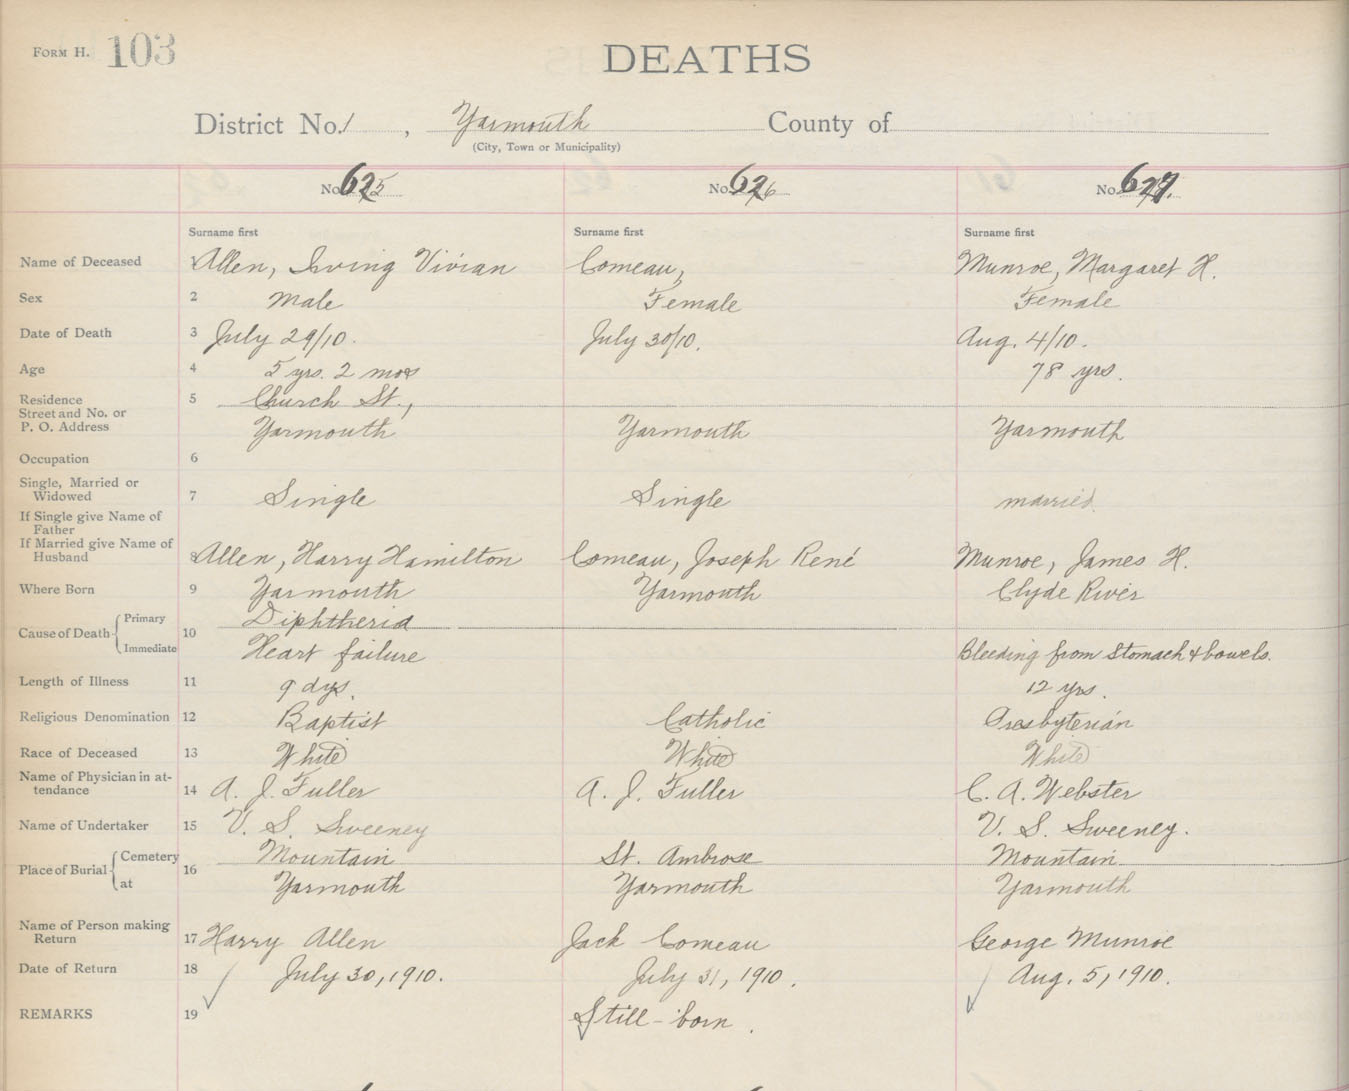 FORM H. 103
DEATHS
District No. 1, Yarmouth County of
(City, Town or Municipality)
No. 625 No. 626 No. 627.
Surname first Surname first Surname first
Name of Deceased 1 Allen, Irving Vivian Comeau, Munroe, Margaret H.
Sex 2 Male Female Female
Date of Death 3 July 29/10. July 30/10. Aug. 4/10.
Age 4 5 yrs. 2 mos 78 yrs.
Residence 5 Church St.,
Street and No. or
P. O. Address Yarmouth Yarmouth Yarmouth
Occupation 6
Single, Married or
Widowed 7 Single Single married.
If Single give Name of
Father
If Married give Name of
Husband 8 Allen, Harry Hamilton Comeau, Joseph René Munroe, James H.
Where Born 9 Yarmouth Yarmouth Clyde River
Cause of Death Primary 10 Diphtheria
Immediate Heart failure Bleeding from Stomach & bowels.
Length of Illness 11 9 dys. 12 yrs.
Religious Denomination 12 Baptist Catholic Presbyterian
Race of Deceased 13 White White White
Name of Physician in at-
tendance 14 A. J. Fuller A. J. Fuller C. A. Webster
Name of Undertaker 15 V. S. Sweeney V. S. Sweeney.
Place of Burial Cemetery 16 Mountain St. Ambrose Mountain
at Yarmouth Yarmouth Yarmouth
Name of Person making
Return 17 Harry Allen Jack Comeau George Munroe
Date of Return 18 July 30, 1910. July 31, 1910. Aug. 5, 1910.
REMARKS 19 Still-born.